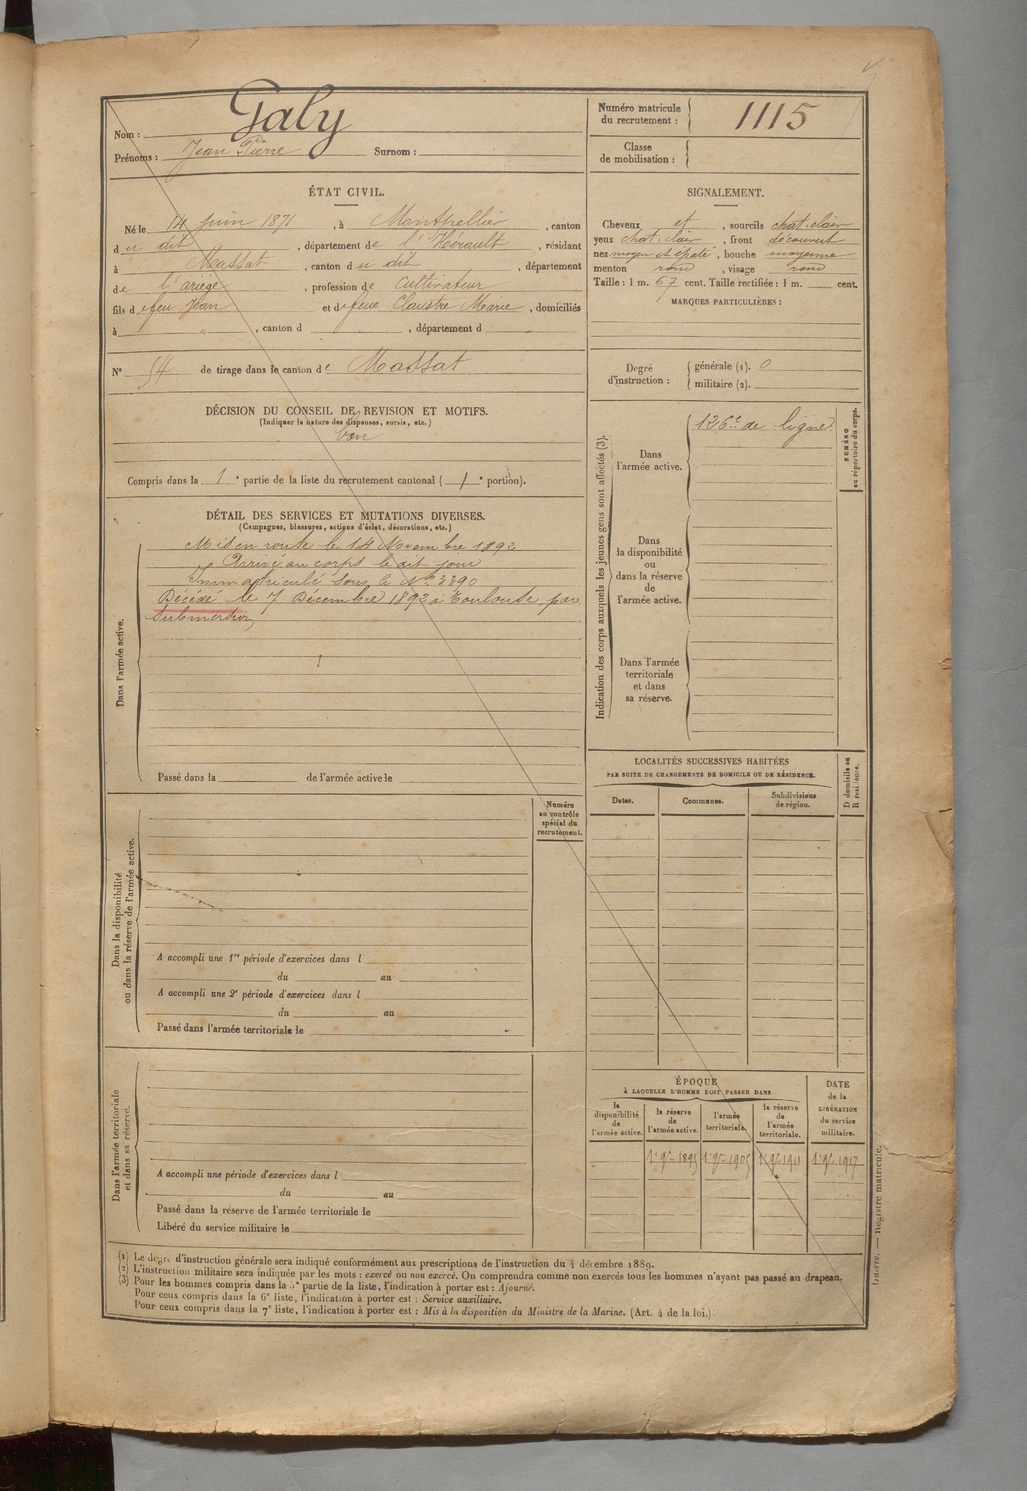 Nom : Galy
Prénoms : Jean Pierre Surnom :
Numéro matricule
du recrutement : 1115
Classe
de mobilisation :
ÉTAT CIVIL.
Né le 14 Juin 1871, à Montpellier, canton
du dit, département de l'Hérault, résidant
à Massat, canton du dit, département
de l'ariège, profession de Cultivateur
fils de feu Jean et de feue Claustre Marie, domiciliés
à ", canton d , département d
N° 54 de tirage dans le canton de Massat
DÉCISION DU CONSEIL DE REVISION ET MOTIFS.
(Indiquer la nature des dispenses, sursis, etc.)
bon
Compris dans la 1e partie de la liste du recrutement cantonal ( 1e portion).
DÉTAIL DES SERVICES ET MUTATIONS DIVERSES.
(Campagnes, blessures, actions d'éclat, décorations, etc.)
Dans l'armée active.
Mis en route le 14 Novembre 1892
Arrivé au corps le dit jour
Immatriculé sous le N° 3390
Décédé le 7 Décembre 1892 à Toulouse par
submersion
Passé dans la de l'armée active le
Dans la disponibilité
ou dans la réserve de l'armée active.
Numéro
au contrôle
spécial du
recrutement.
A accompli une 1re période d'exercices dans l
du au
A accompli une 2e période d'exercices dans l
du au
Passé dans l'armée territoriale le
Dans l'armée territoriale
et dans sa réserve.
A accompli une période d'exercices dans l
du au
Passé dans la réserve de l'armée territoriale le
Libéré du service militaire le
SIGNALEMENT.
Cheveux et , sourcils chat. clair
yeux chat. clair , front découvert
nez moyen et épaté , bouche moyenne
menton rond , visage rond
Taille : 1 m. 67 cent. Taille rectifiée : 1 m. cent.
MARQUES PARTICULIÈRES :
Degré
d'instruction :
générale (1). 0
militaire (2).
Indication des corps auxquels les jeunes gens sont affectés (3).
NUMÉRO
au répertoire du corps.
Dans
l'armée active.
126e de ligne
Dans
la disponibilité
ou
dans la réserve
de
l'armée active.
Dans l'armée
territoriale
et dans
sa réserve.
LOCALITÉS SUCCESSIVES HABITÉES
PAR SUITE DE CHANGEMENTS DE DOMICILE OU DE RÉSIDENCE.
D domicile ou
R résidence.
Dates. Communes. Subdivisions
de région.
ÉPOQUE
À LAQUELLE L'HOMME DOIT PASSER DANS
DATE
de la
LIBÉRATION
du service
militaire.
la
disponibilité
de
l'armée active.
la réserve
de
l'armée active.
l'armée
territoriale.
la réserve
de
l'armée
territoriale.
1895 1905 1911 1917
Guerre. — Registre matricule.
(1) Le degré d'instruction générale sera indiqué conformément aux prescriptions de l'instruction du 4 décembre 1889.
(2) L'instruction militaire sera indiquée par les mots : exercé ou non exercé. On comprendra comme non exercés tous les hommes n'ayant pas passé au drapeau.
(3) Pour les hommes compris dans la 5e partie de la liste, l'indication à porter est : Ajourné.
Pour ceux compris dans la 6e liste, l'indication à porter est : Service auxiliaire.
Pour ceux compris dans la 7e liste, l'indication à porter est : Mis à la disposition du Ministre de la Marine. (Art. 4 de la loi.)